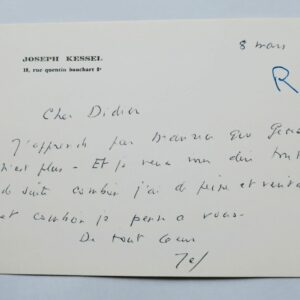 JOSEPH KESSEL
18, rue quentin bauchart 8e
8 mars
R
Cher Didier
J'apprends par que
n'est plus - Et je veux vous dire tout
de suite combien j'ai de peine
et combien je pense à vous -
De tout cœur